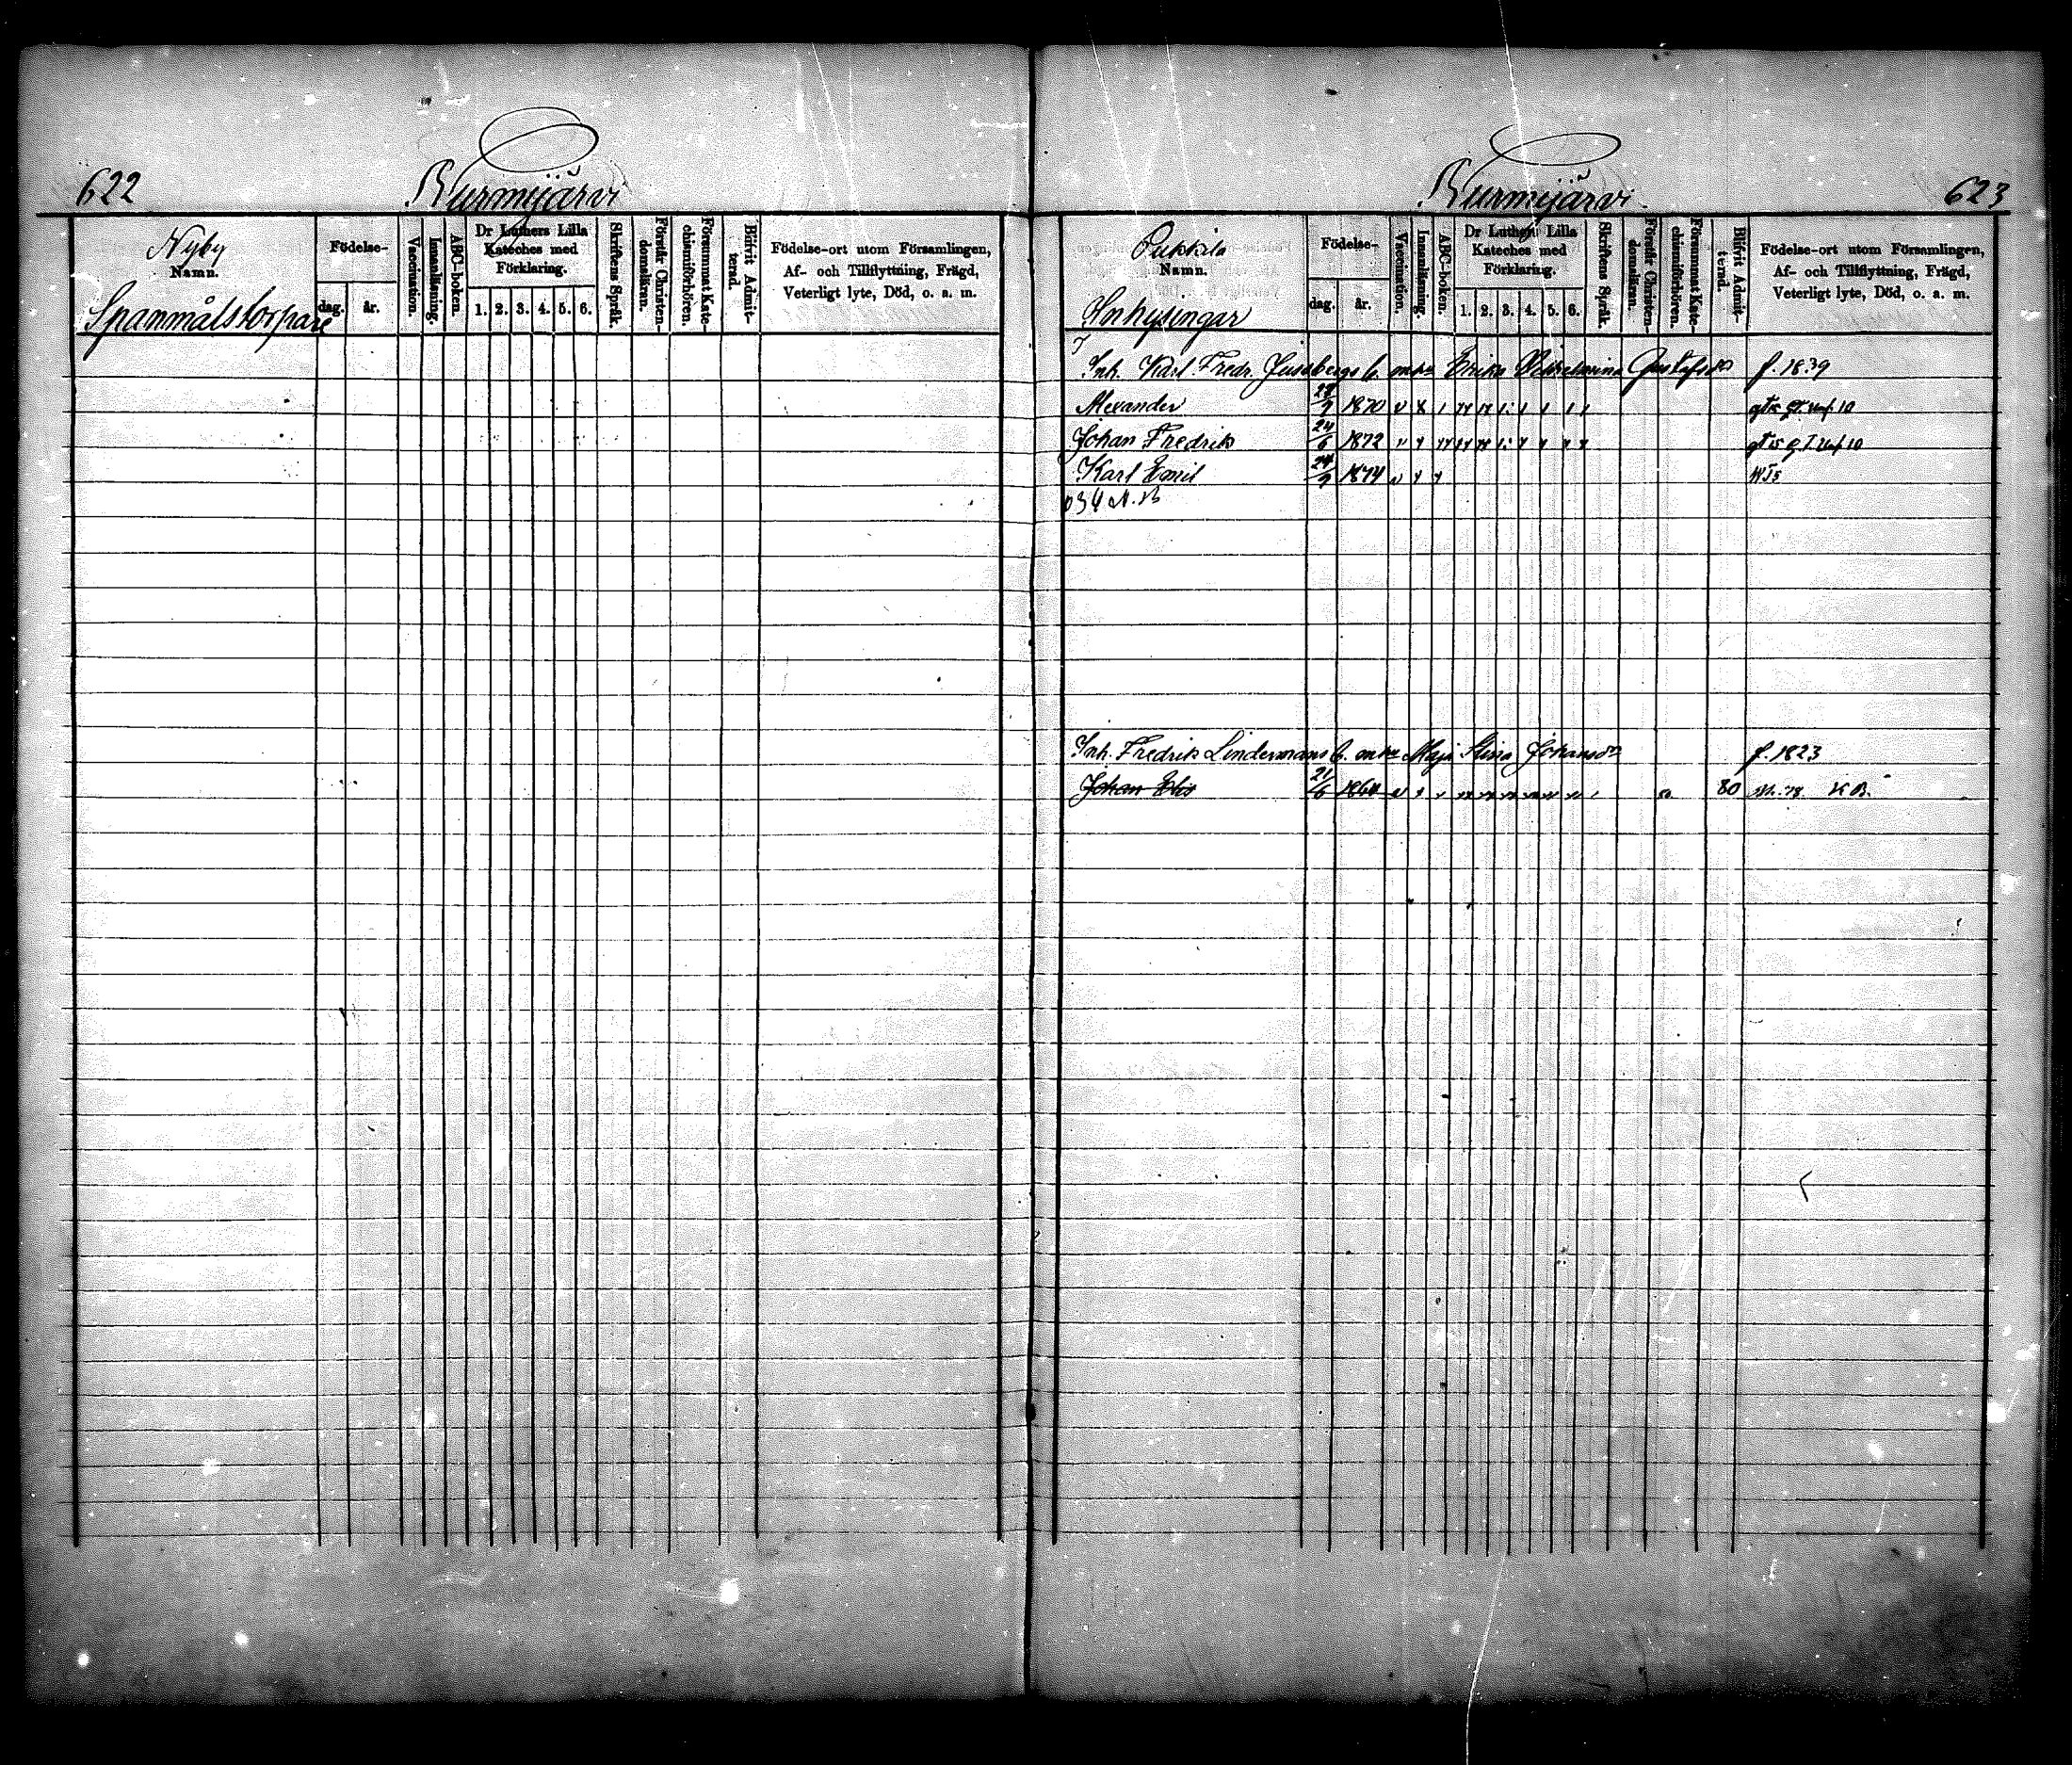 622
Kurmijärvi
Nyby
Namn.
Spannmålstorpare
Födelse-
dag.
år.
Vaccination.
Innanläsning.
ABC-boken.
Dr Luthers Lilla
Kateches med
Förklaring.
1. 2. 3. 4. 5. 6.
Skriftens Språk.
Förstår Christen-
domsläran.
Försummat Kate-
chismiförhören.
Blifvit Admit-
terad.
Födelse-ort utom Församlingen,
Af- och Tillflyttning, Frägd,
Veterligt lyte, Död, o. a. m.
Kurmijärvi
623
Pukkila
Namn.
Inhysingar
Födelse-
dag.
år.
Vaccination.
Innanläsning.
ABC-boken.
Dr Luthers Lilla
Kateches med
Förklaring.
1. 2. 3. 4. 5. 6.
Skriftens Språk.
Förstår Christen-
domsläran.
Försummat Kate-
chismiförhören.
Blifvit Admit-
terad.
Födelse-ort utom Församlingen,
Af- och Tillflyttning, Frägd,
Veterligt lyte, Död, o. a. m.
Inh. Karl Fredr. enka Erika Vilhelmina Gustafsdr f. 1839
Alexander 1870
Johan Fredrik 24/6 1872
Karl Emil 24/9 1874
Inh. Fredrik Lindermans enka Maja Stina Johansdr f. 1823
Johan 21/6 1864 80